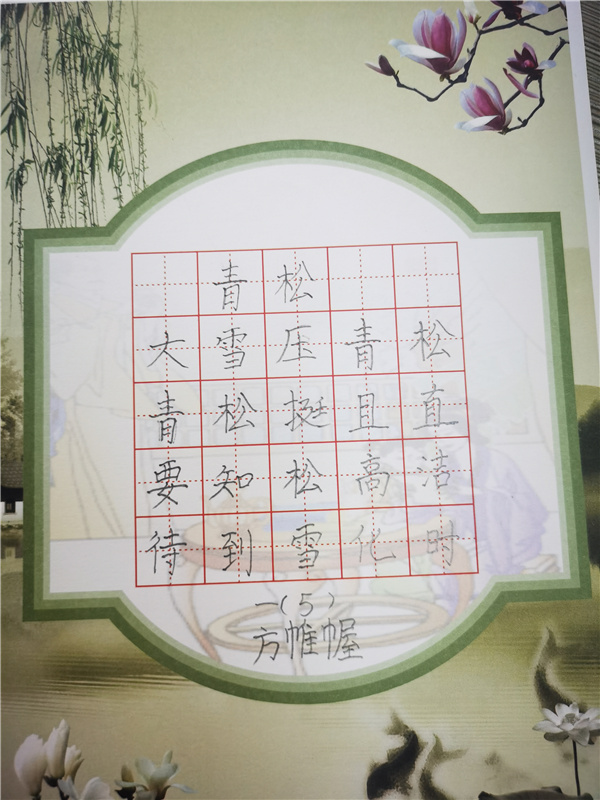 青松
大雪压青松
青松挺且直
要知松高洁
待到雪化时
一(5)
方帷幄